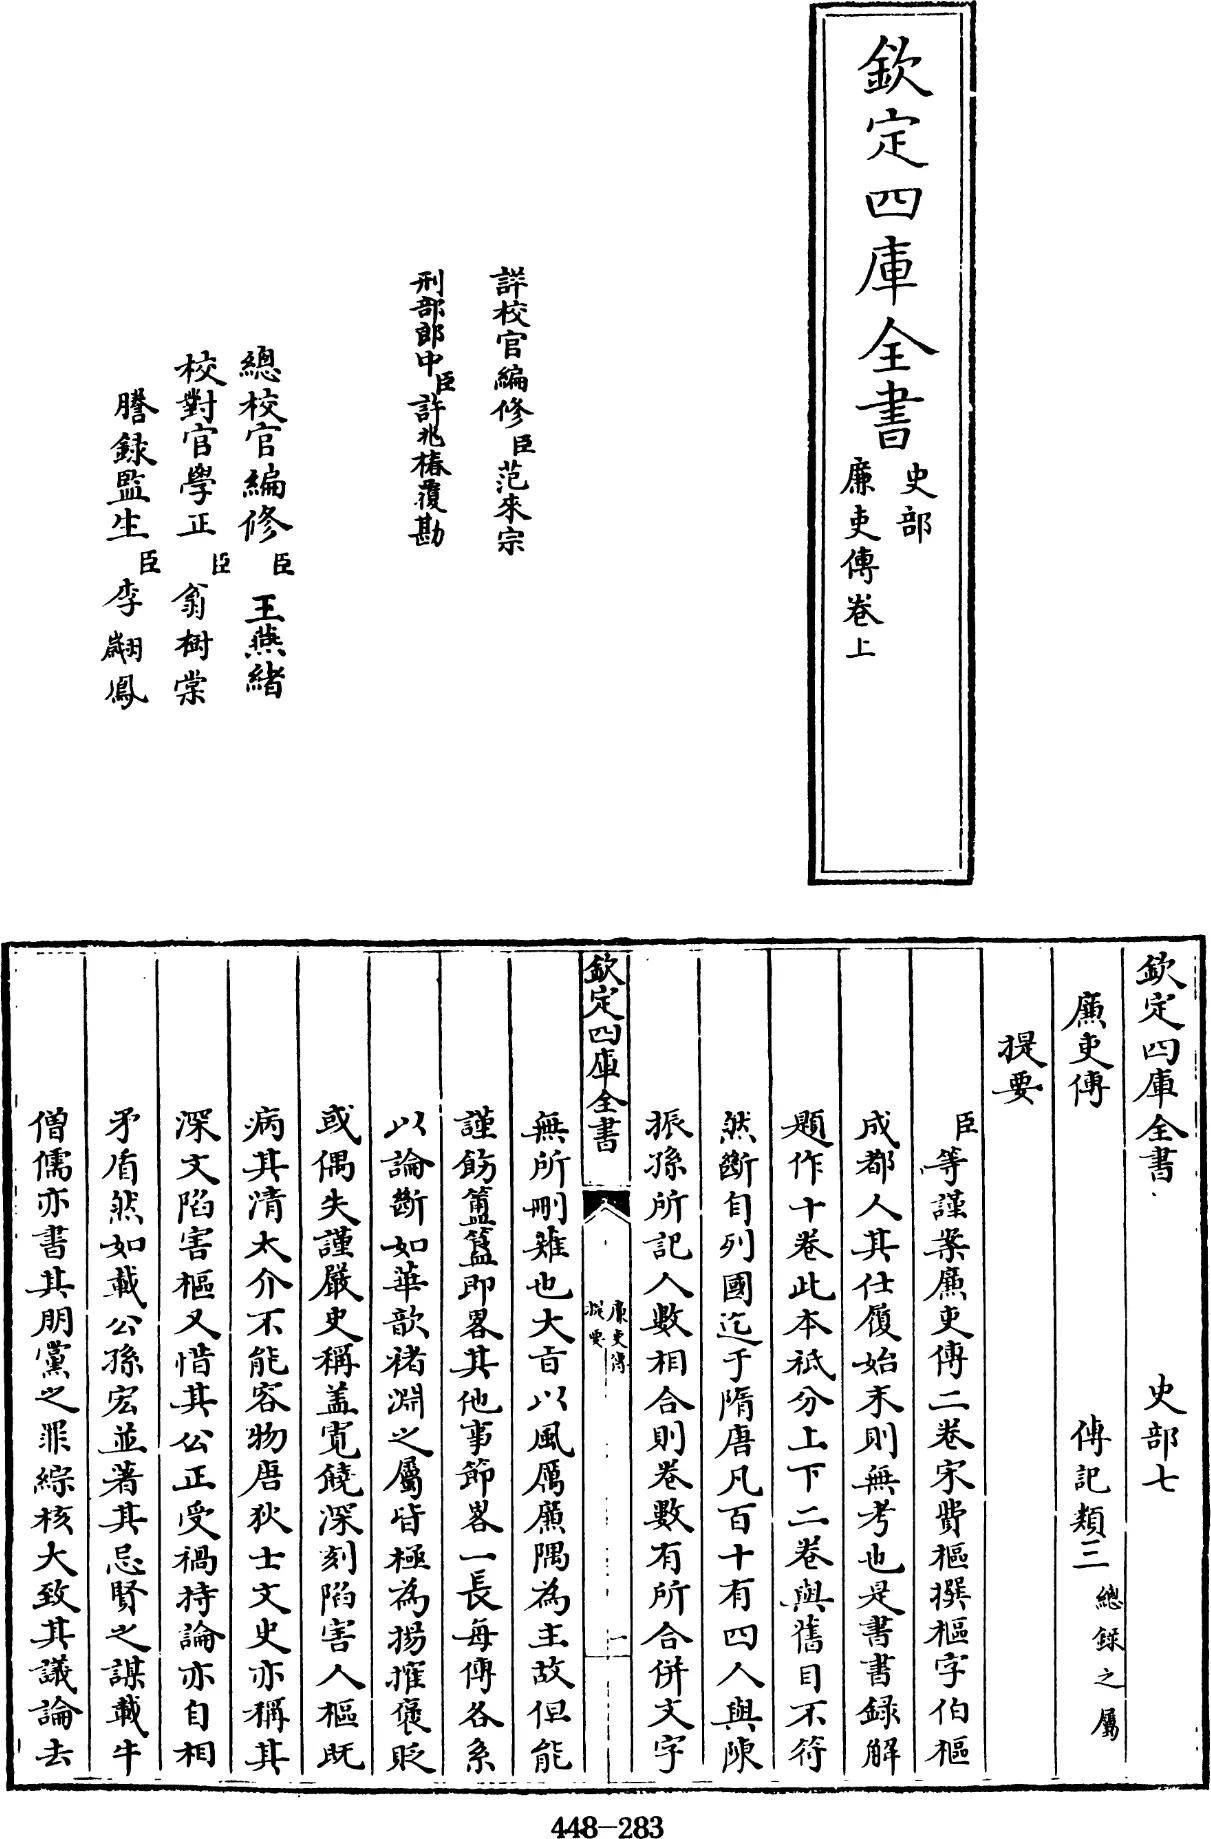 欽定四庫全書
史部
廉吏傳卷上
詳校官編修臣范來宗
刑部郎中臣許兆椿覆勘
總校官編修臣王燕緒
校對官學正臣翁樹棠
謄錄監生臣李翽鳳
欽定四庫全書 史部七
廉吏傳 傳記類三總錄之屬
提要
臣等謹案廉吏傳二卷宋費樞撰樞字伯樞
成都人其仕履始末則無考也是書書錄解
題作十卷此本祇分上下二卷與舊目不符
然斷自列國迄于隋唐凡百十有四人與陳
振孫所記人數相合則卷數有所合併文字
欽定四庫全書
廉吏傳
提要
一
無所刪難也大旨以風厲廉隅為主故但能
謹飭簠簋即畧其他事節畧一長每傳各系
以論斷如華歆褚淵之屬皆極為揚搉褒貶
或偶失謹嚴史稱蓋寬饒深刻陷害人樞既
病其清太介不能容物唐狄士文史亦稱其
深文陷害樞又惜其公正受禍持論亦自相
矛盾然如載公孫宏並著其忌賢之謀載牛
僧儒亦書其朋黨之罪綜核大致其議論去
448-283